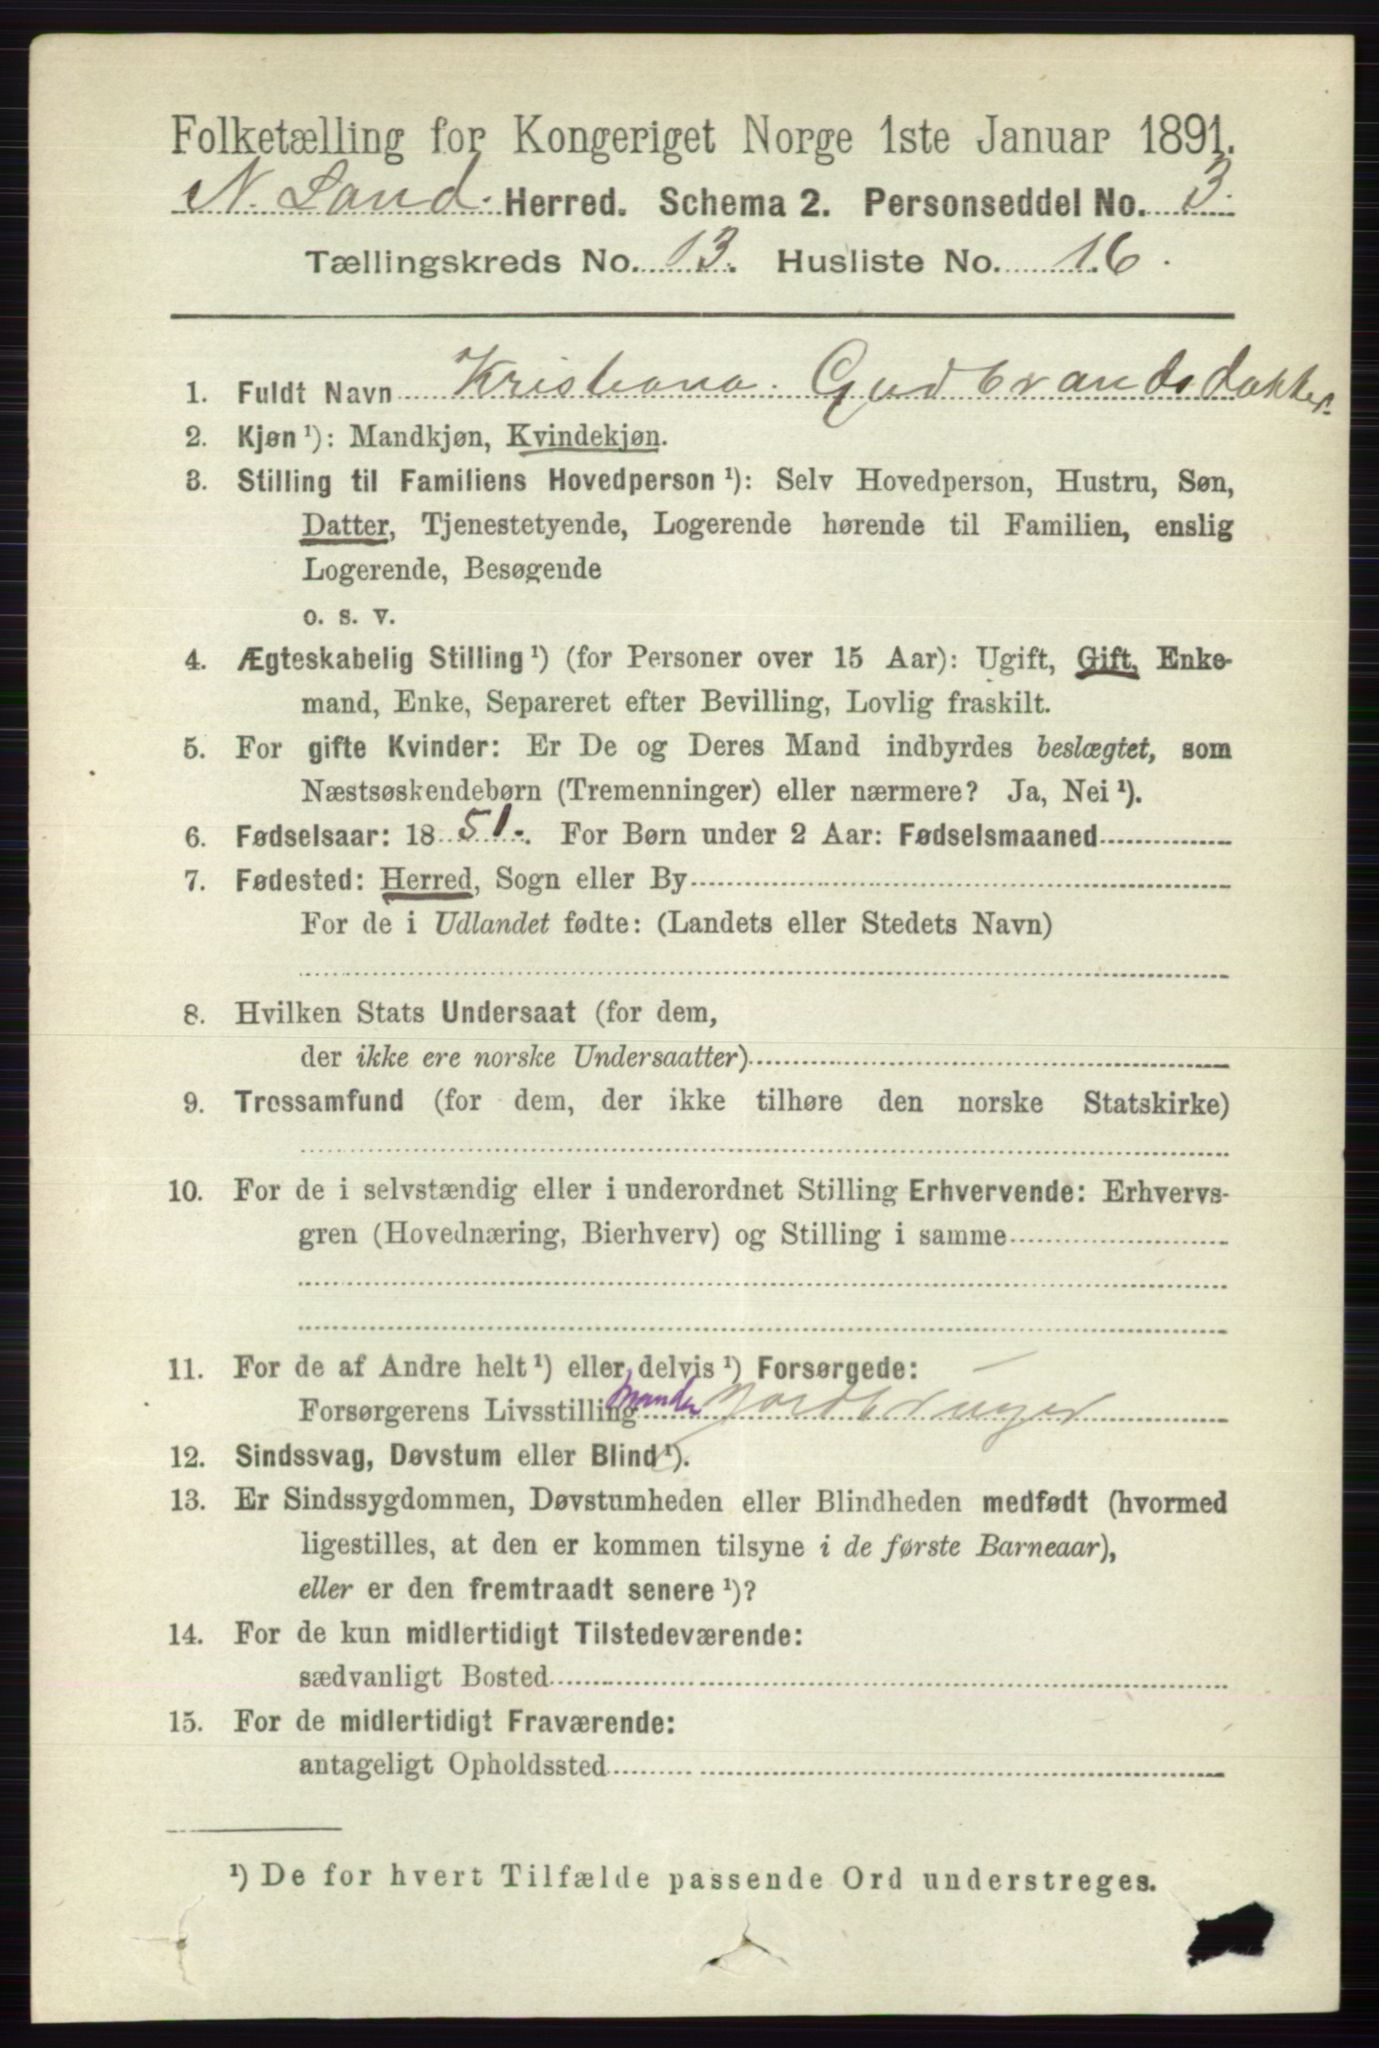 Folketælling for Kongeriget Norge 1ste Januar 1891.
N. Land. Herred. Schema 2. Personseddel No. 3.
Tællingskreds No. 13. Husliste No. 16.
1. Fuldt Navn Kristiana Gudbrandsdatter.
2. Kjøn ¹): Mandkjøn, Kvindekjøn.
3. Stilling til Familiens Hovedperson ¹): Selv Hovedperson, Hustru, Søn,
Datter, Tjenestetyende, Logerende hørende til Familien, enslig
Logerende, Besøgende
o. s. v.
4. Ægteskabelig Stilling ¹) (for Personer over 15 Aar): Ugift, Gift, Enke-
mand, Enke, Separeret efter Bevilling, Lovlig fraskilt.
5. For gifte Kvinder: Er De og Deres Mand indbyrdes beslægtet, som
Næstsøskendebørn (Tremenninger) eller nærmere? Ja, Nei ¹).
6. Fødselsaar: 18 51. For Børn under 2 Aar: Fødselsmaaned
7. Fødested: Herred, Sogn eller By
For de i Udlandet fødte: (Landets eller Stedets Navn)
8. Hvilken Stats Undersaat (for dem,
der ikke ere norske Undersaatter)
9. Trossamfund (for dem, der ikke tilhøre den norske Statskirke)
10. For de i selvstændig eller i underordnet Stilling Erhvervende: Erhvervs-
gren (Hovednæring, Bierhverv) og Stilling i samme
11. For de af Andre helt ¹) eller delvis ¹) Forsørgede:
Forsørgerens Livsstilling Manden Jordbruger
12. Sindssvag, Døvstum eller Blind ¹).
13. Er Sindssygdommen, Døvstumheden eller Blindheden medfødt (hvormed
ligestilles, at den er kommen tilsyne i de første Barneaar),
eller er den fremtraadt senere ¹)?
14. For de kun midlertidigt Tilstedeværende:
sædvanligt Bosted
15. For de midlertidigt Fraværende:
antageligt Opholdssted
¹) De for hvert Tilfælde passende Ord understreges.